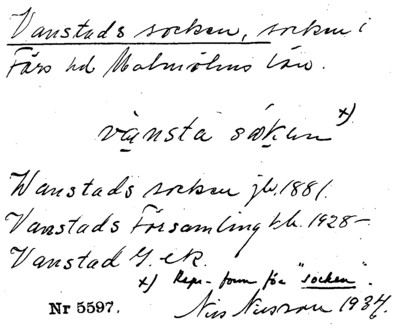 Vanstads socken, socken i
Färs hd Malmöhus län.
vànsta såkan x)
Wanstads socken jb. 1881.
Vanstads Församling kb. 1928-
Vanstad G.ek.
x) Repr-form för "socken".
Nr 5597. Nils Nilsson 1934.